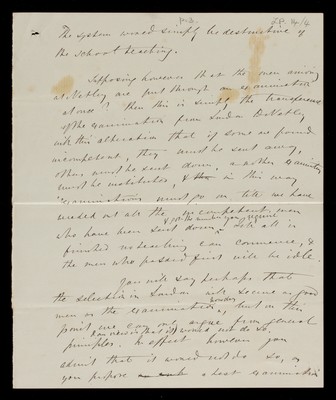 The system would simply be destructive of
the school teaching.
Supposing however that the men arriving
at Netley are put through an examination
at once? Then this is simply the transference
of the examination from London to Netley
with this alteration that if some are found
incompetent, they must be sent away,
others must be sent down, another examination
must be instituted, & in this way
examinations must go on till we have
weeded out all the incompetent men
who have been sent down, Till all is
finished no teaching can commence, &
the men who passed first will be idle.
You will say perhaps that
the selection in London will secure as good
men as the examination, but on this
point we can only argue from general
principles. In effect however you
admit that it would not do so, as
you propose a test examination